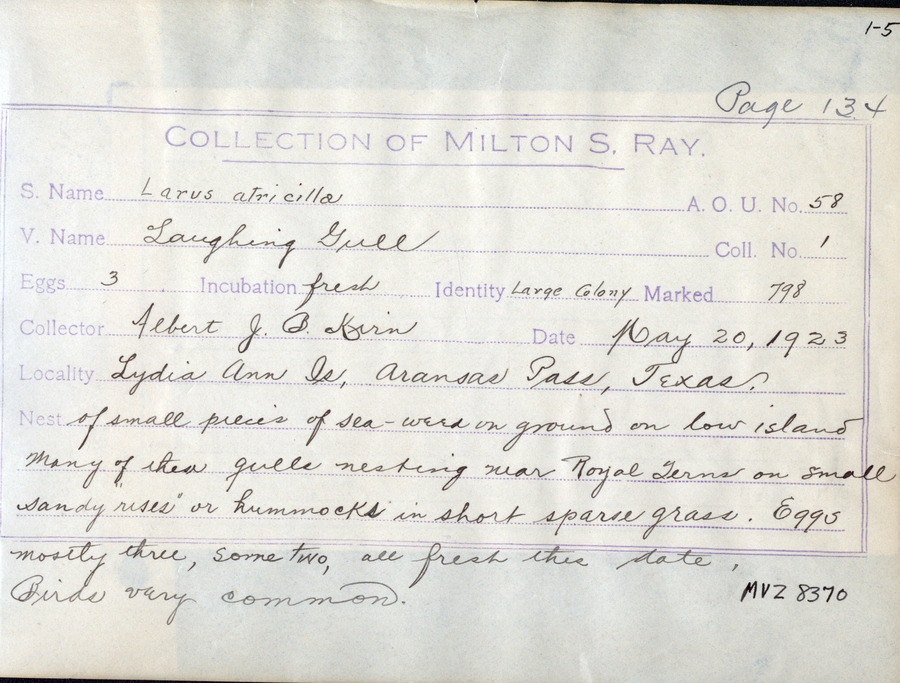 1-5
Page 134
COLLECTION OF MILTON S. RAY.
S. Name Larus atricilla A. O. U. No. 58
V. Name Laughing Gull Coll. No. 1
Eggs 3 Incubation fresh Identity Large Colony Marked 798
Collector Albert J. B. Kirn Date May 20, 1923
Locality Lydia Ann Is, Aransas Pass, Texas.
Nest of small pieces of sea-weed on ground on low island
Many of these gulls nesting near Royal Terns on small
sandy "rises" or hummocks in short sparse grass. Eggs
mostly three, some two, all fresh this date,
Birds very common.
MVZ 8370